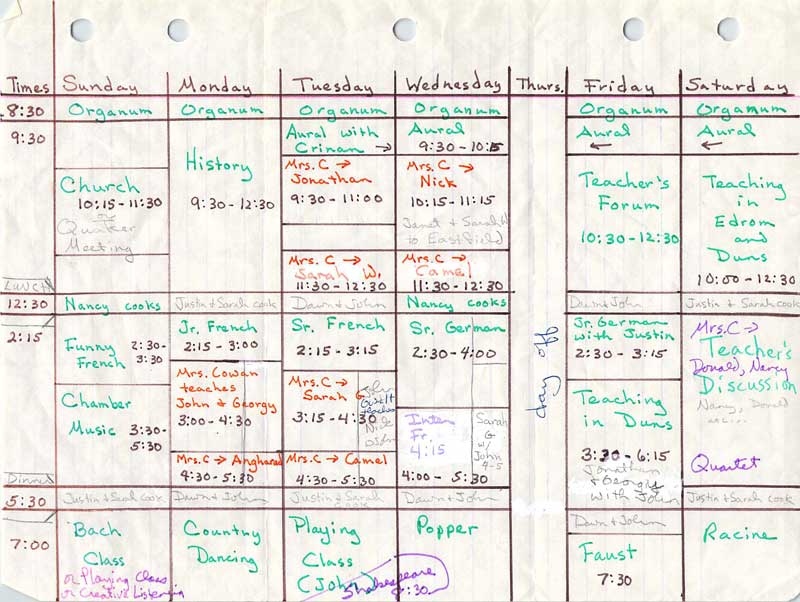 Times Sunday Monday Tuesday Wednesday Thurs. Friday Saturday
8:30 Organum Organum Organum Organum Organum Organum
9:30
Church
10:15 - 11:30
or
Quaker
Meeting
History
9:30 - 12:30
Aural with
Crinan →
Mrs. C →
Jonathan
9:30 - 11:00
Mrs. C →
Sarah W.
11:30 - 12:30
Aural
9:30 - 10:15
Mrs. C →
Nick
10:15 - 11:15
Janet & Sarah W
to Eastfield
Mrs. C →
Camel
11:30 - 12:30
day off
Aural
←
Teacher's
Forum
10:30 - 12:30
Aural
←
Teaching
in
Edrom
and
Duns
10:00 - 12:30
Lunch
12:30 Nancy cooks Justin & Sarah cook Dawn & John Nancy cooks Dawn & John Justin & Sarah cook
2:15
Funny 2:30-
French 3:30
Chamber
Music 3:30-
5:30
Jr. French
2:15 - 3:00
Mrs. Cowan
teaches
John & Georgy
3:00 - 4:30
Mrs. C → Angharad
4:30 - 5:30
Sr. French
2:15 - 3:15
Mrs. C →
Sarah G
3:15 - 4:30
John
Nick
Mrs. C → Camel
4:30 - 5:30
Sr. German
2:30 - 4:00
Inter
Fr.
4:15
Sarah
G
w/
John
4-5
4:00 - 5:30
Jr. German
with Justin
2:30 - 3:15
Teaching
in Duns
3:30 - 6:15
Jonathan
& Georgy
with John
Mrs. C →
Teacher's
Donald, Nancy
Discussion
Nancy, Donald
Quartet
Dinner
5:30 Justin & Sarah cook Dawn & John Justin & Sarah cook Dawn & John Justin & Sarah cook
7:00
Bach
Class
or Playing Class
or Creative Listening
Country
Dancing
Playing
Class
(John)
Shakespeare
7:30
Popper
Dawn & John
Faust
7:30
Racine